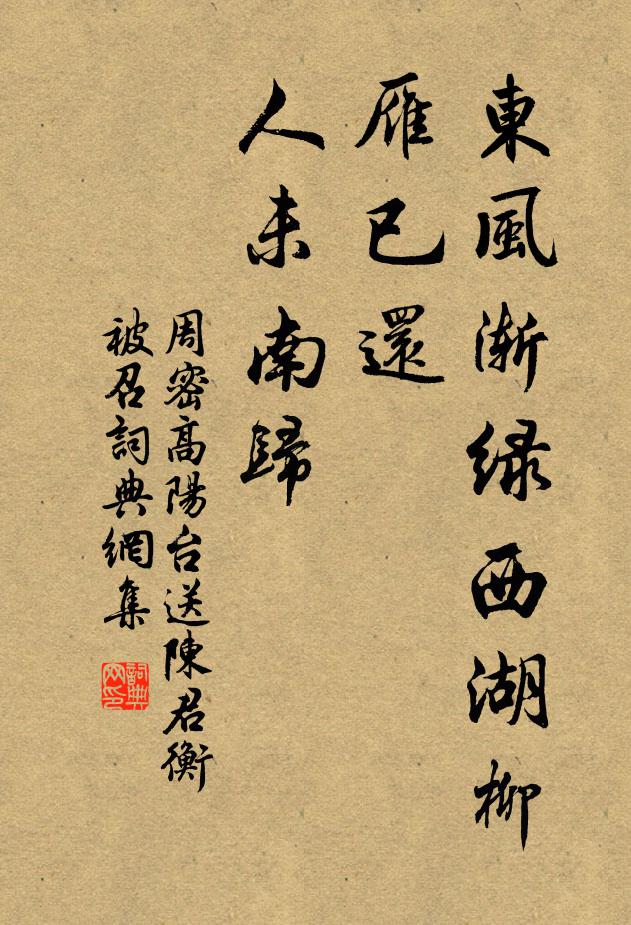 東風漸緑西湖柳
雁已還
人未南歸
周密高陽台送陳君衡
被召詞典網集
詞典網印